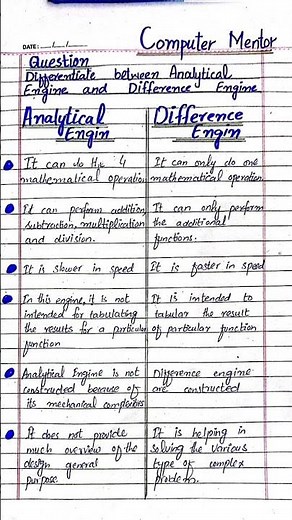 Computer Mentor
DATE: __/__/__
Question
Differentiate between Analytical
Engine and Difference Engine
Analytical
Engin
Difference
Engin
It can do the 4
mathematical operation
It can only do one
mathematical operation
It can perform addition,
subtraction, multiplication
and division.
It can only perform
the additional
functions.
It is slower in speed
It is faster in speed
In this engine, it is not
intended for tabulating
the results for a particular
function
It is intended to
tabular the result
of particular function
Analytical Engine is not
constructed because of
its mechanical complexities
Difference engine
are constructed
It does not provide
much overview of the
design general
purpose
It is helping in
solving the various
type of complex
problem.